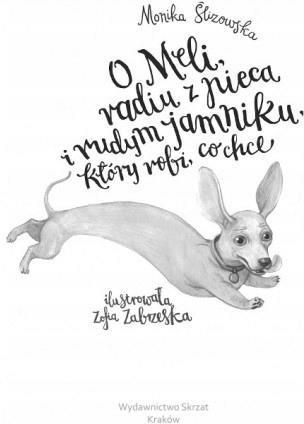 Monika Ślizowska
O Meli,
radiu z pieca
i rudym jamniku,
który robi, co chce
ilustrowała
Zofia Zabrzeska
Wydawnictwo Skrzat
Kraków